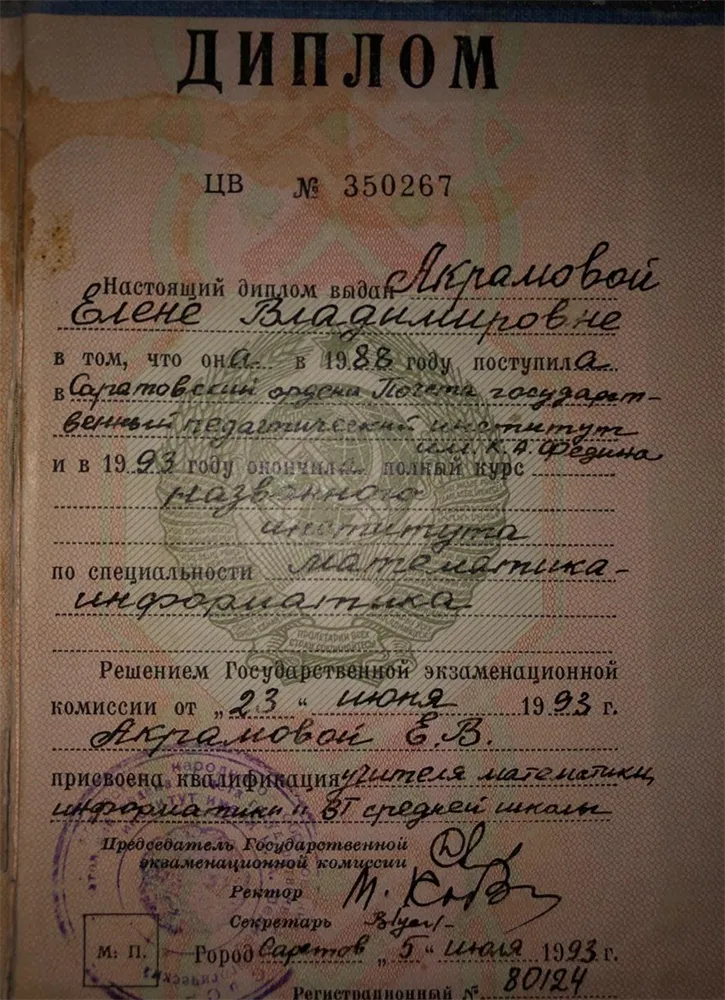 ДИПЛОМ
ЦВ № 350267
Настоящий диплом выдан Акрамовой
Елене Владимировне
в том, что она в 1988 году поступила
в Саратовский ордена Почета государст-
венный педагогический институт
им. К. А. Федина
и в 1993 году окончила полный курс
названного
института
по специальности математика-
информатика
ПРОЛЕТАРИИ ВСЕХ
СТРАН, СОЕДИНЯЙТЕСЬ!
Решением Государственной экзаменационной
комиссии от „23“ июня 1993 г.
Акрамовой Е.В.
присвоена квалификация учителя математики,
информатики и ВТ средней школы
Председатель Государственной
экзаменационной комиссии
Ректор
Секретарь
М. П. Город Саратов „5“ июля 1993 г.
Регистрационный № 80124